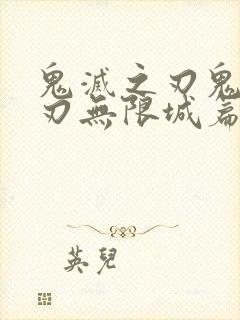 鬼滅之刃鬼
刃無限城篇
英兒